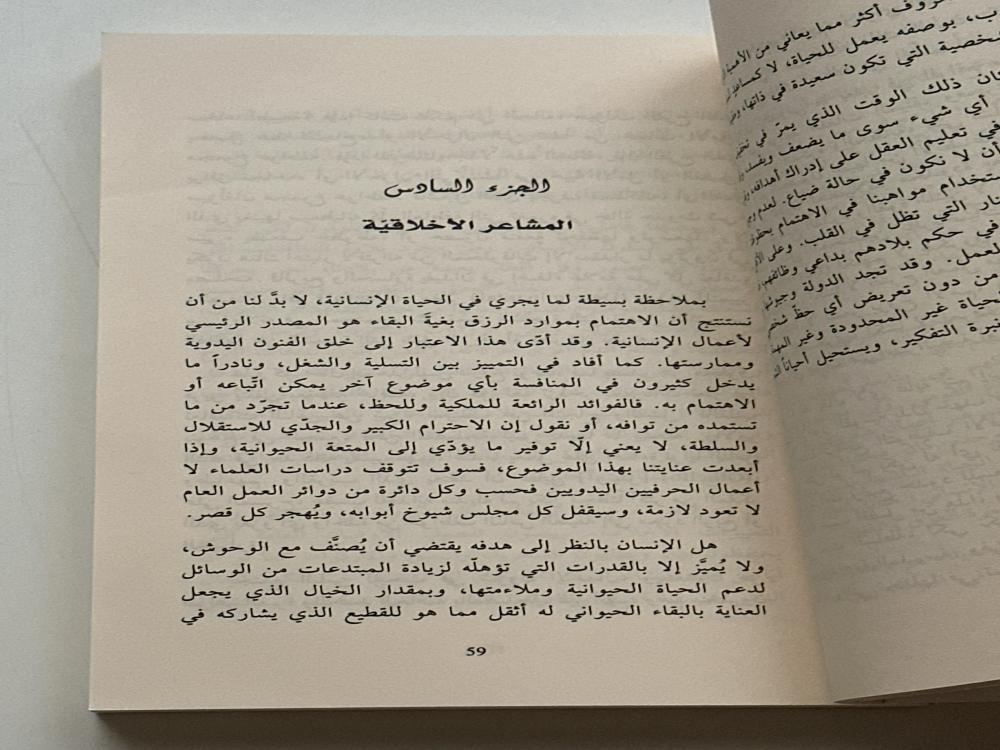 الجزء السادس
المشاعر الأخلاقيّة
بملاحظة بسيطة لما يجري في الحياة الإنسانية، لا بدَّ لنا من أن
نستنتج أن الاهتمام بموارد الرزق بغيةَ البقاء هو المصدر الرئيسي
لأعمال الإنسانية. وقد أدّى هذا الاعتبار إلى خلق الفنون اليدوية
وممارستها. كما أفاد في التمييز بين التسلية والشغل، ونادراً ما
يدخل كثيرون في المنافسة بأي موضوع آخر يمكن اتّباعه أو
الاهتمام به. فالفوائد الرائعة للملكية وللحظ، عندما تجرّد من ما
تستمده من توافه، أو نقول إن الاحترام الكبير والجدّي للاستقلال
والسلطة، لا يعني إلّا توفير ما يؤدّي إلى المتعة الحيوانية، وإذا
أبعدت عنايتنا بهذا الموضوع، فسوف تتوقف دراسات العلماء لا
أعمال الحرفيين اليدويين فحسب وكل دائرة من دوائر العمل العام
لا تعود لازمة، وسيقفل كل مجلس شيوخ أبوابه، ويُهجر كل قصر.
هل الإنسان بالنظر إلى هدفه يقتضي أن يُصنَّف مع الوحوش،
ولا يُميَّز إلا بالقدرات التي تؤهلّه لزيادة المبتدعات من الوسائل
لدعم الحياة الحيوانية وملاءمتها، وبمقدار الخيال الذي يجعل
العناية بالبقاء الحيواني له أثقل مما هو للقطيع الذي يشاركه في
59
أكثر مما يعاني من
بوصفه يعمل للحياة، لا
التي تكون سعيدة في ذاتها،
ذلك الوقت الذي يمرّ في
أي شيء سوى ما يضعف ويفسد،
في تعليم العقل على إدراك أهدافه،
أن لا نكون في حالة ضياع.
مواهبنا في الاهتمام
التي تظل في القلب. وعلى
في حكم بلادهم بداعي وظائفهم،
العمل. وقد تجد الدولة
من دون تعريض أي حظّ
غير المحدودة وغير
التفكير، ويستحيل أحياناً